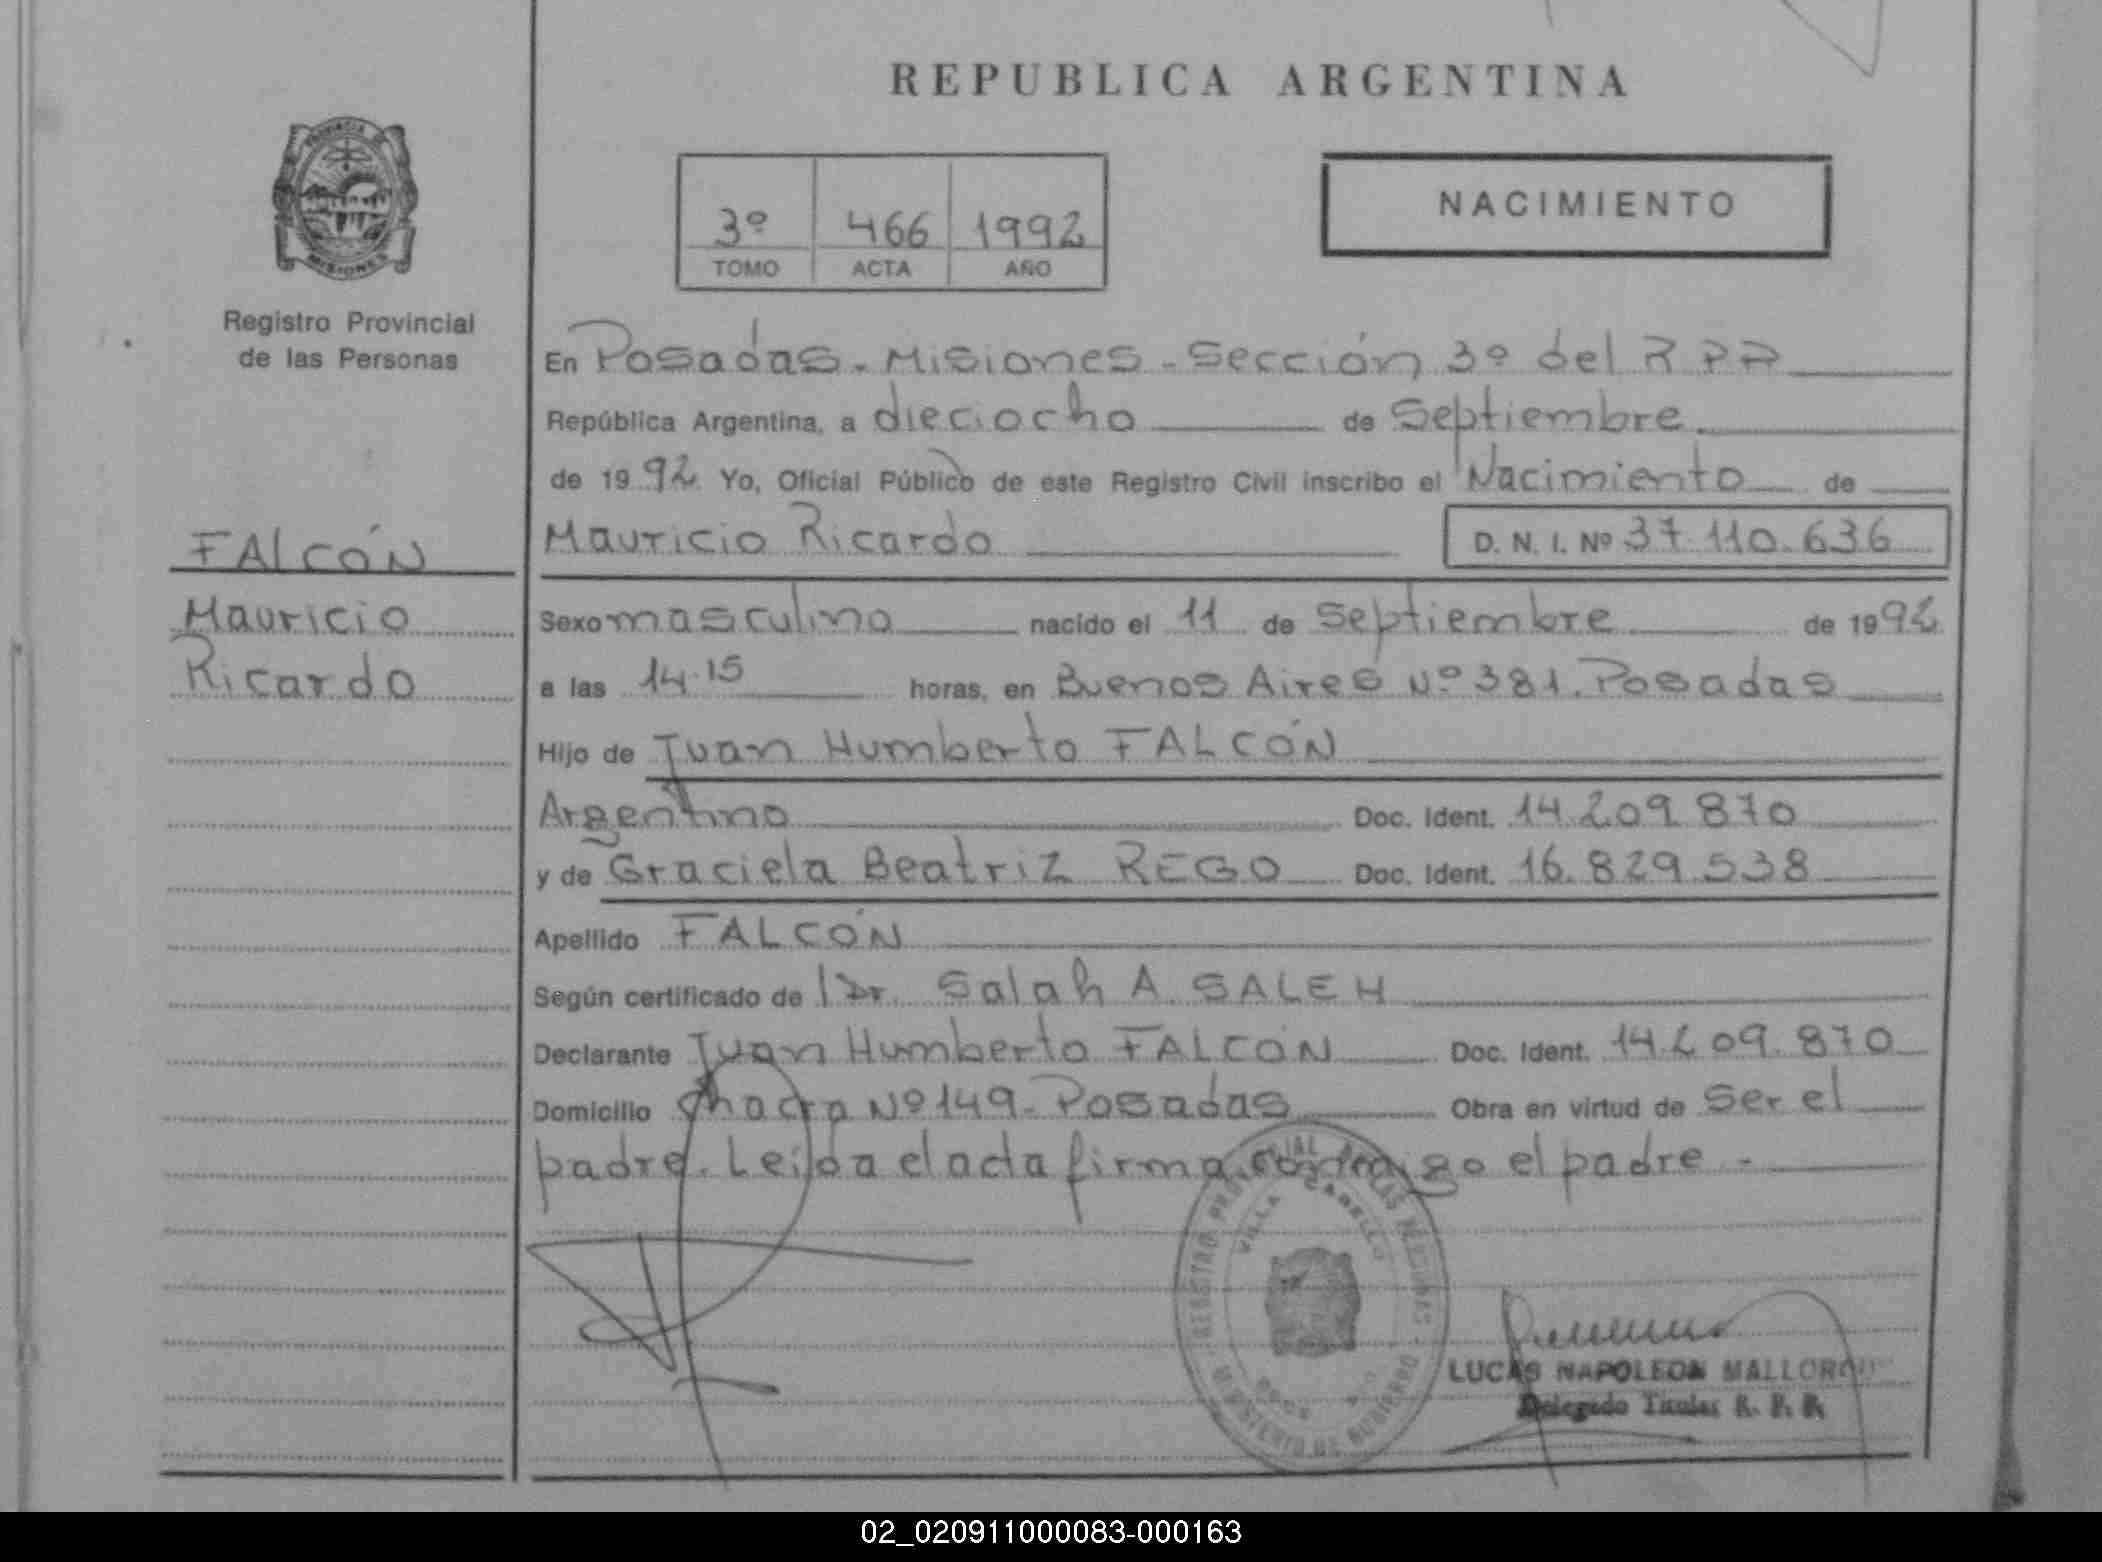 REPUBLICA ARGENTINA
PROVINCIA DE
MISIONES
Registro Provincial
de las Personas
3º 466 1992
TOMO ACTA AÑO
NACIMIENTO
En Posadas - Misiones - Sección 3º del R P P
República Argentina, a dieciocho de Septiembre
de 1992 Yo, Oficial Público de este Registro Civil inscribo el Nacimiento de
Mauricio Ricardo D. N. I. Nº 37.110.636
FALCÓN
Mauricio
Ricardo
Sexo masculino nacido el 11 de Septiembre de 1992
a las 14.15 horas, en Buenos Aires Nº 381. Posadas
Hijo de Juan Humberto FALCÓN
Argentino Doc. Ident. 14.209.870
y de Graciela Beatriz REGO Doc. Ident. 16.829.538
Apellido FALCÓN
Según certificado de Dr. Salah A. SALEH
Declarante Juan Humberto FALCÓN Doc. Ident. 14.209.870
Domicilio Chacra Nº 149 - Posadas Obra en virtud de Ser el
padre. Leída el acta firma conmigo el padre -
REGISTRO PROVINCIAL DE LAS PERSONAS
VILLA CABELLO
MINISTERIO DE GOBIERNO
LUCAS NAPOLEON
Delegado Titular R. P. P.
02_020911000083-000163